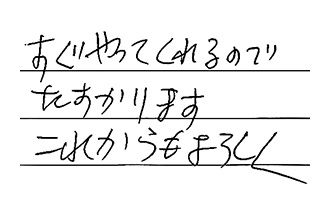 すぐやってくれるので
たすかります
これからもよろしく